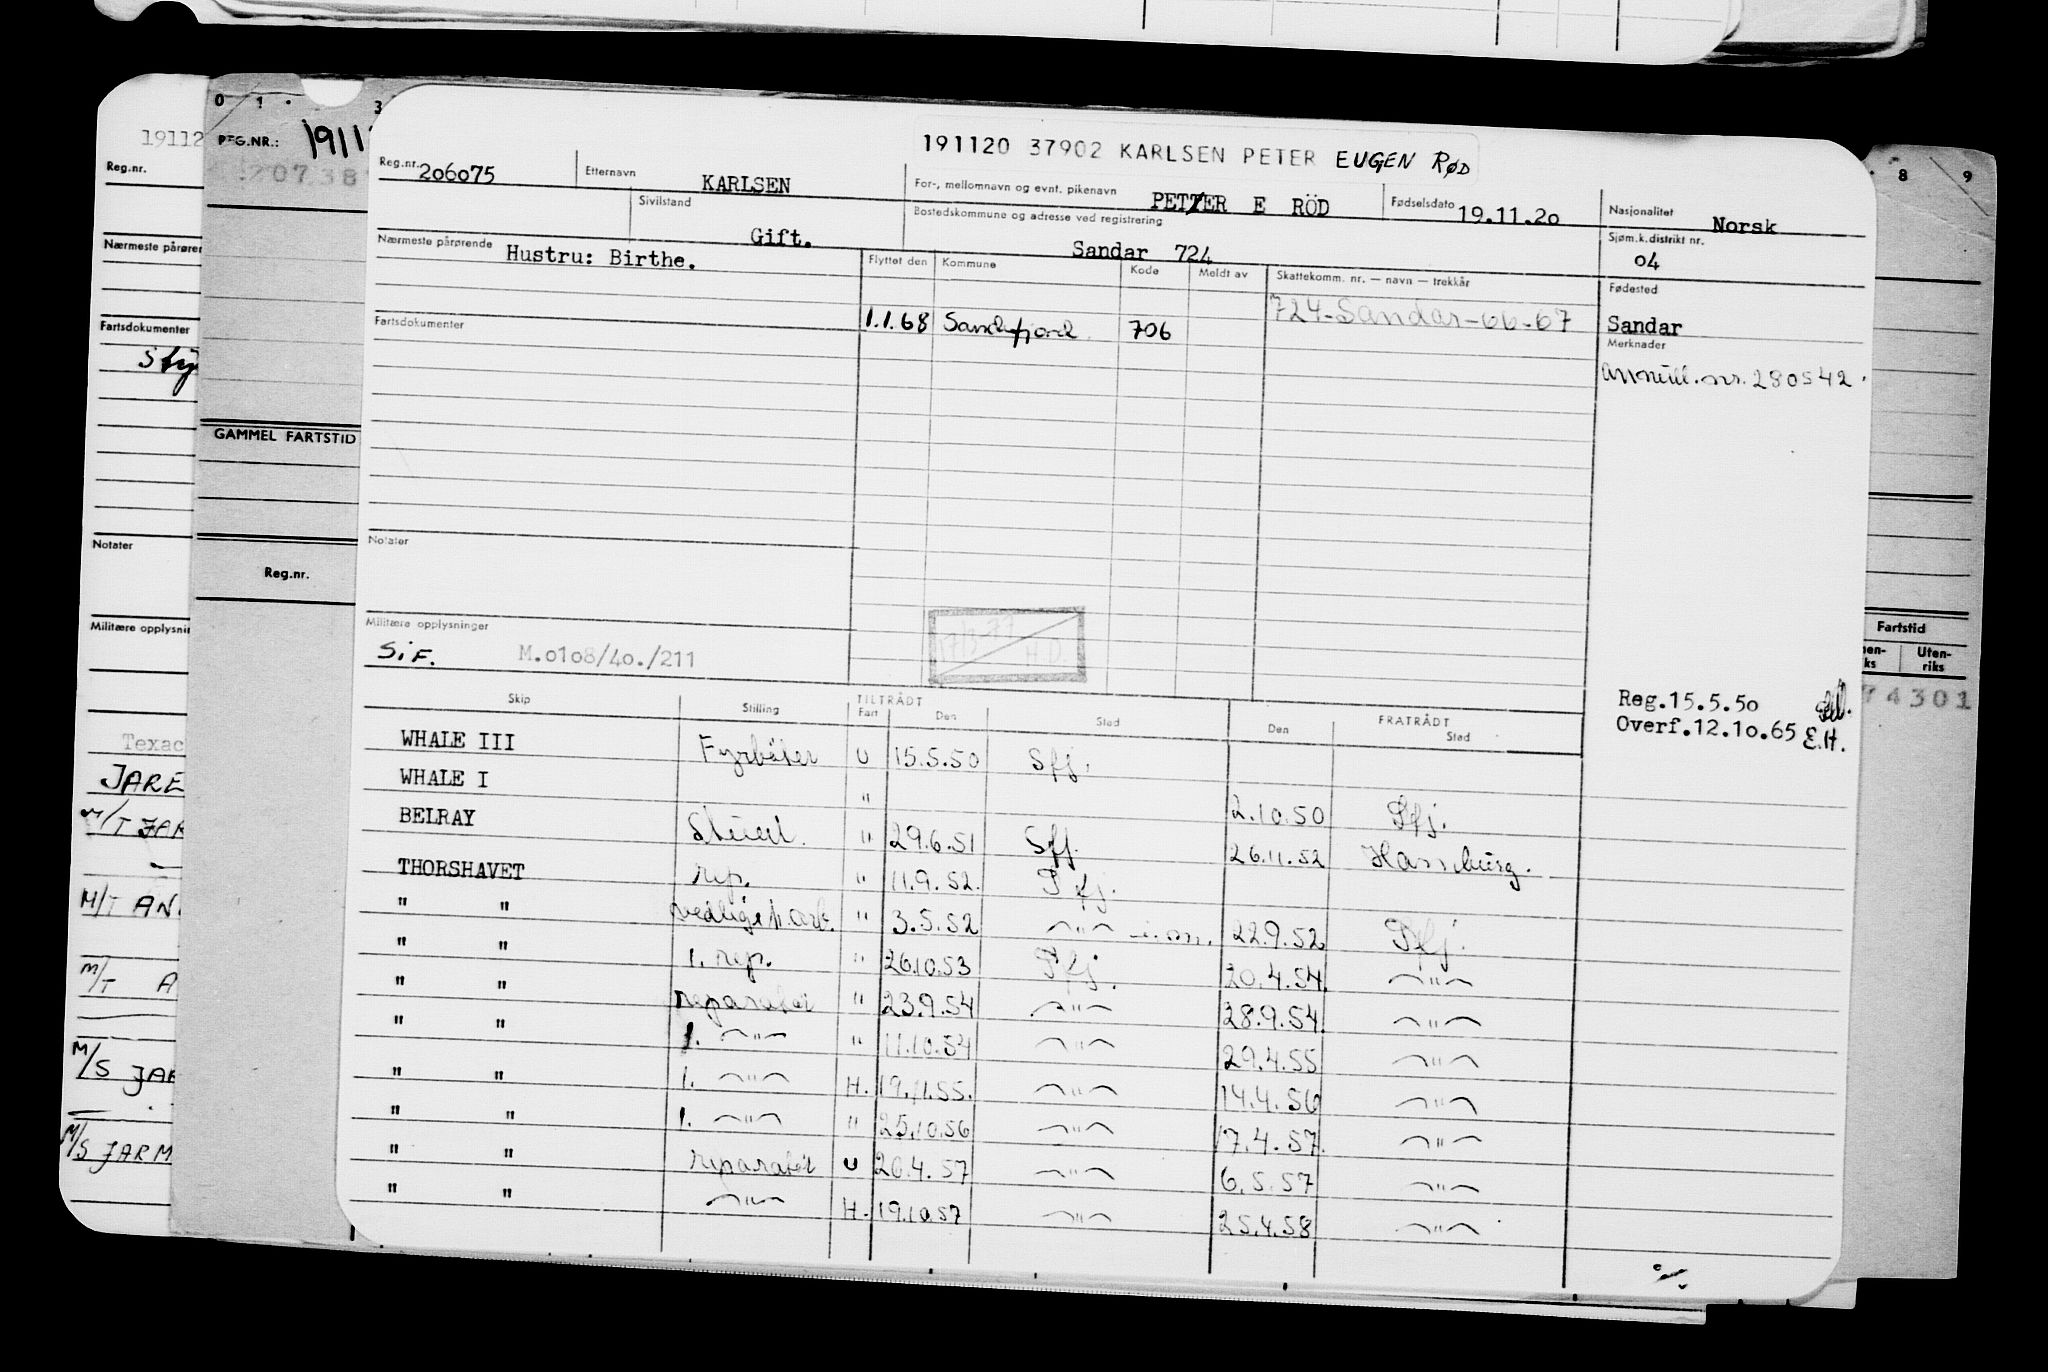 0 1 . 3
8 9
19112
REG.NR.: 1911
20738
191120 37902 KARLSEN PETER EUGEN RØD
Reg.nr. 206075 Etternavn KARLSEN For-, mellomnavn og evnt. pikenavn PETER E RÖD Fødselsdato 19.11.20 Nasjonalitet Norsk
Sivilstand Gift. Bostedskommune og adresse ved registrering Sandar 724 Sjøm.k.distrikt nr. 04
Nærmeste pårørende Hustru: Birthe. Flyttet den Kommune Kode Meldt av Skattekomm. nr. — navn — trekkår Fødested
724-Sandar-66-67
Fartsdokumenter 1.1.68 Sandefjord 706 Sandar
Merknader
Annull. nr. 280542.
Notater
Militære opplysninger
S.i.F. M.0108/40./211
17/3-77 H.D.
Reg.15.5.50
Overf.12.10.65 E.H.
Skip Stilling TILTRÅDT FRATRÅDT
Fart Den Sted Den Sted
WHALE III Fyrbøter U 15.5.50 Sfj.
WHALE I " 2.10.50 Sfj.
BELRAY Stuert. " 29.6.51 Sfj. 26.11.52 Hamburg.
THORSHAVET rep. " 11.9.52. Sfj.
" " vedligeh.arb. " 3.5.52 " 22.9.52 Sfj.
" " 1. rep. " 26.10.53 Sfj. 20.4.54. "
" " reparatør " 23.9.54 " 28.9.54. "
" " 1. " " 11.10.54 " 29.4.55 "
" " 1. " H. 19.11.55. " 14.4.56 "
" " 1. " " 25.10.56 " 17.4.57. "
" " reparatør U 20.4.57 " 6.5.57 "
" " " H. 19.10.57 " 25.4.58 "
Reg.nr.
Nærmeste pårøren
Fartsdokumenter
Sty
Notater
Militære opplysnin
Texac
JARE
M/T JAR
M/T AN
M/T A
M/S JAR
M/S JARM
GAMMEL FARTSTID
Reg.nr.
Fartstid
nen-
ks
Uten-
riks
74301